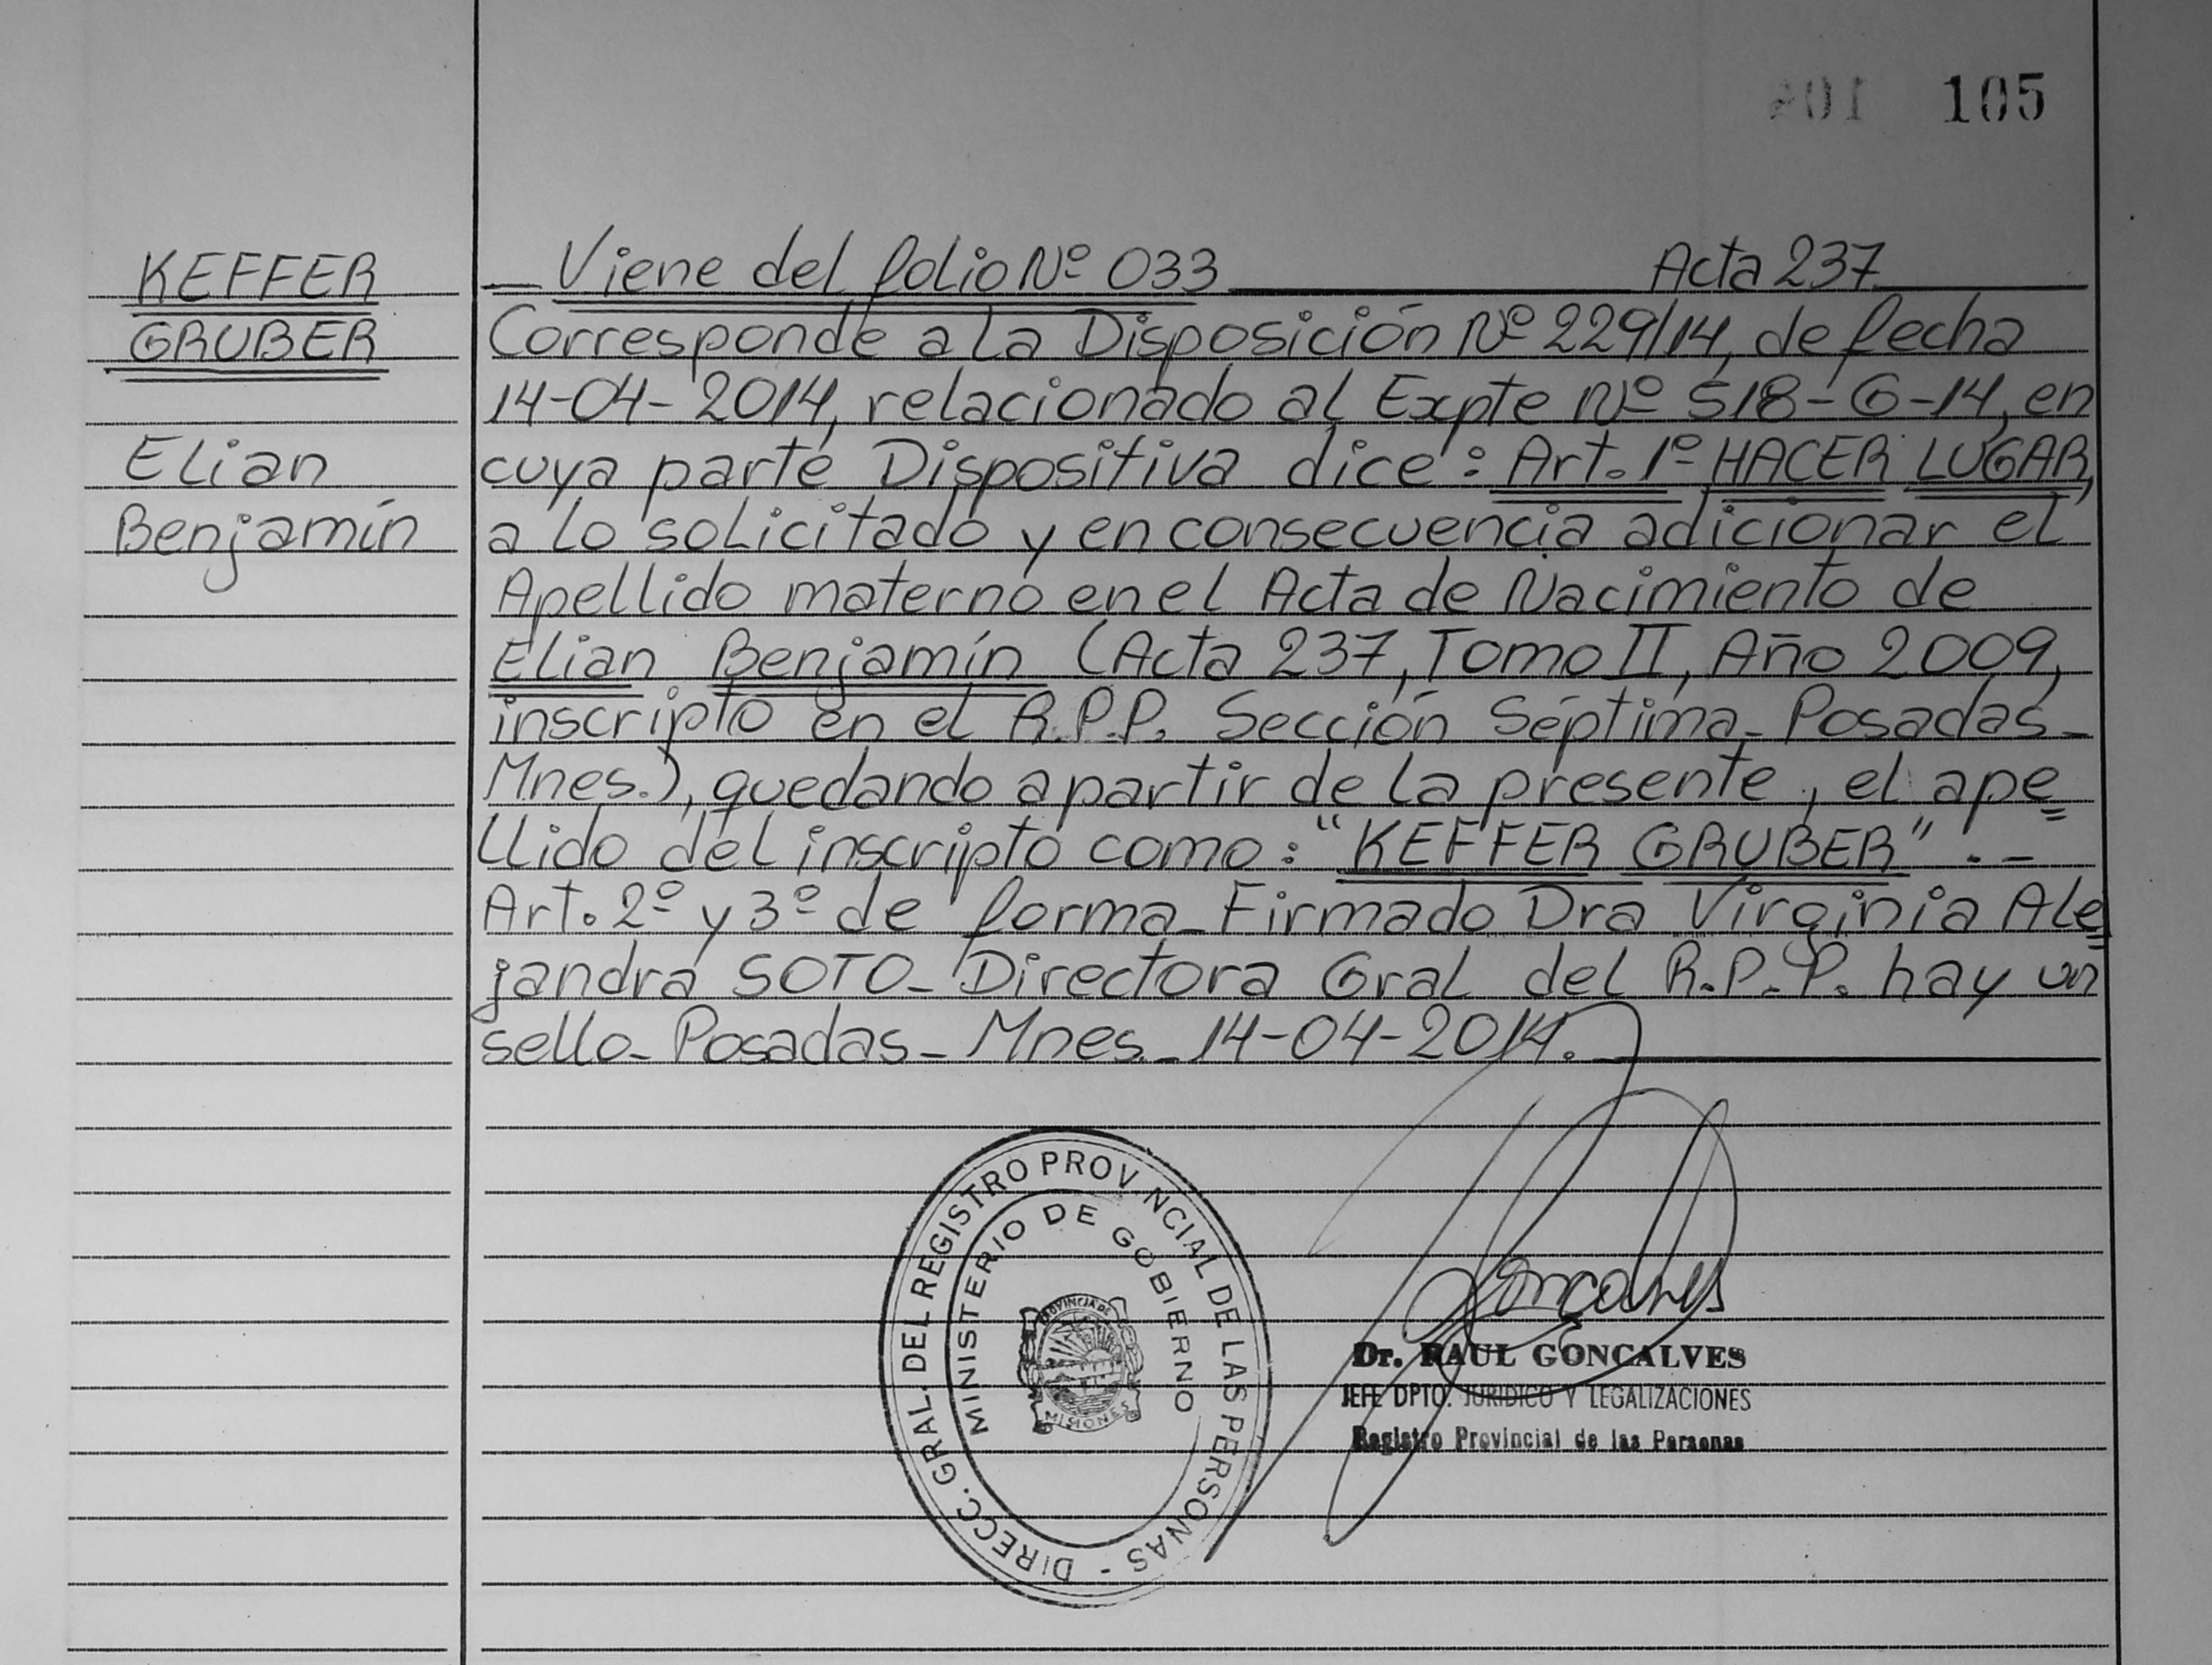 105
KEFFER
GRUBER
Elian
Benjamín
Viene del folio Nº 033 Acta 237
Corresponde a la Disposición Nº 229/14, de fecha
14-04-2014, relacionado al Expte Nº 518-G-14, en
cuya parte Dispositiva dice: Art. 1º HACER LUGAR,
a lo solicitado y en consecuencia adicionar el
Apellido materno en el Acta de Nacimiento de
Elian Benjamín (Acta 237, Tomo II, Año 2009,
inscripto en el R.P.P. Sección Séptima_ Posadas_
Mnes.), quedando a partir de la presente, el ape=
llido del inscripto como: "KEFFER GRUBER" . _
Art. 2º y 3º de forma_ Firmado Dra Virginia Ale=
jandra SOTO_ Directora Gral del R.P.P. hay un
sello_ Posadas_ Mnes_ 14-04-2014.
DIRECC. GRAL. DEL REGISTRO PROVINCIAL DE LAS PERSONAS -
MINISTERIO DE GOBIERNO
PROVINCIA DE
MISIONES
Goncalves
Dr. RAUL GONCALVES
JEFE DPTO. JURIDICO Y LEGALIZACIONES
Registro Provincial de las Personas